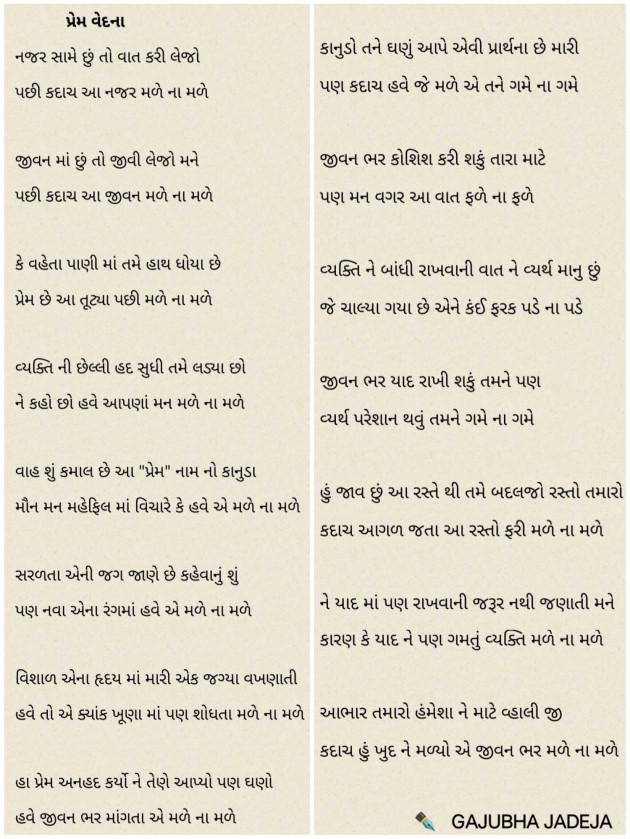 પ્રેમ વેદના
નજર સામે છું તો વાત કરી લેજો
પછી કદાચ આ નજર મળે ના મળે
જીવન માં છું તો જીવી લેજો મને
પછી કદાચ આ જીવન મળે ના મળે
કે વહેતા પાણી માં તમે હાથ ધોયા છે
પ્રેમ છે આ તૂટ્યા પછી મળે ના મળે
વ્યક્તિ ની છેલ્લી હદ સુધી તમે લડ્યા છો
ને કહો છો હવે આપણાં મન મળે ના મળે
વાહ શું કમાલ છે આ "પ્રેમ" નામ નો કાનુડા
મૌન મન મહેફિલ માં વિચારે કે હવે એ મળે ના મળે
સરળતા એની જગ જાણે છે કહેવાનું શું
પણ નવા એના રંગમાં હવે એ મળે ના મળે
વિશાળ એના હૃદય માં મારી એક જગ્યા વખણાતી
હવે તો એ ક્યાંક ખૂણા માં પણ શોધતા મળે ના મળે
હા પ્રેમ અનહદ કર્યો ને તેણે આપ્યો પણ ઘણો
હવે જીવન ભર માંગતા એ મળે ના મળે
કાનુડો તને ઘણું આપે એવી પ્રાર્થના છે મારી
પણ કદાચ હવે જે મળે એ તને ગમે ના ગમે
જીવન ભર કોશિશ કરી શકું તારા માટે
પણ મન વગર આ વાત ફળે ના ફળે
વ્યક્તિ ને બાંધી રાખવાની વાત ને વ્યર્થ માનુ છું
જે ચાલ્યા ગયા છે એને કંઈ ફરક પડે ના પડે
જીવન ભર યાદ રાખી શકું તમને પણ
વ્યર્થ પરેશાન થવું તમને ગમે ના ગમે
હું જાવ છું આ રસ્તે થી તમે બદલજો રસ્તો તમારો
કદાચ આગળ જતા આ રસ્તો ફરી મળે ના મળે
ને યાદ માં પણ રાખવાની જરૂર નથી જણાતી મને
કારણ કે યાદ ને પણ ગમતું વ્યક્તિ મળે ના મળે
આભાર તમારો હંમેશા ને માટે વ્હાલી જી
કદાચ હું ખુદ ને મળ્યો એ જીવન ભર મળે ના મળે
GAJUBHA JADEJA